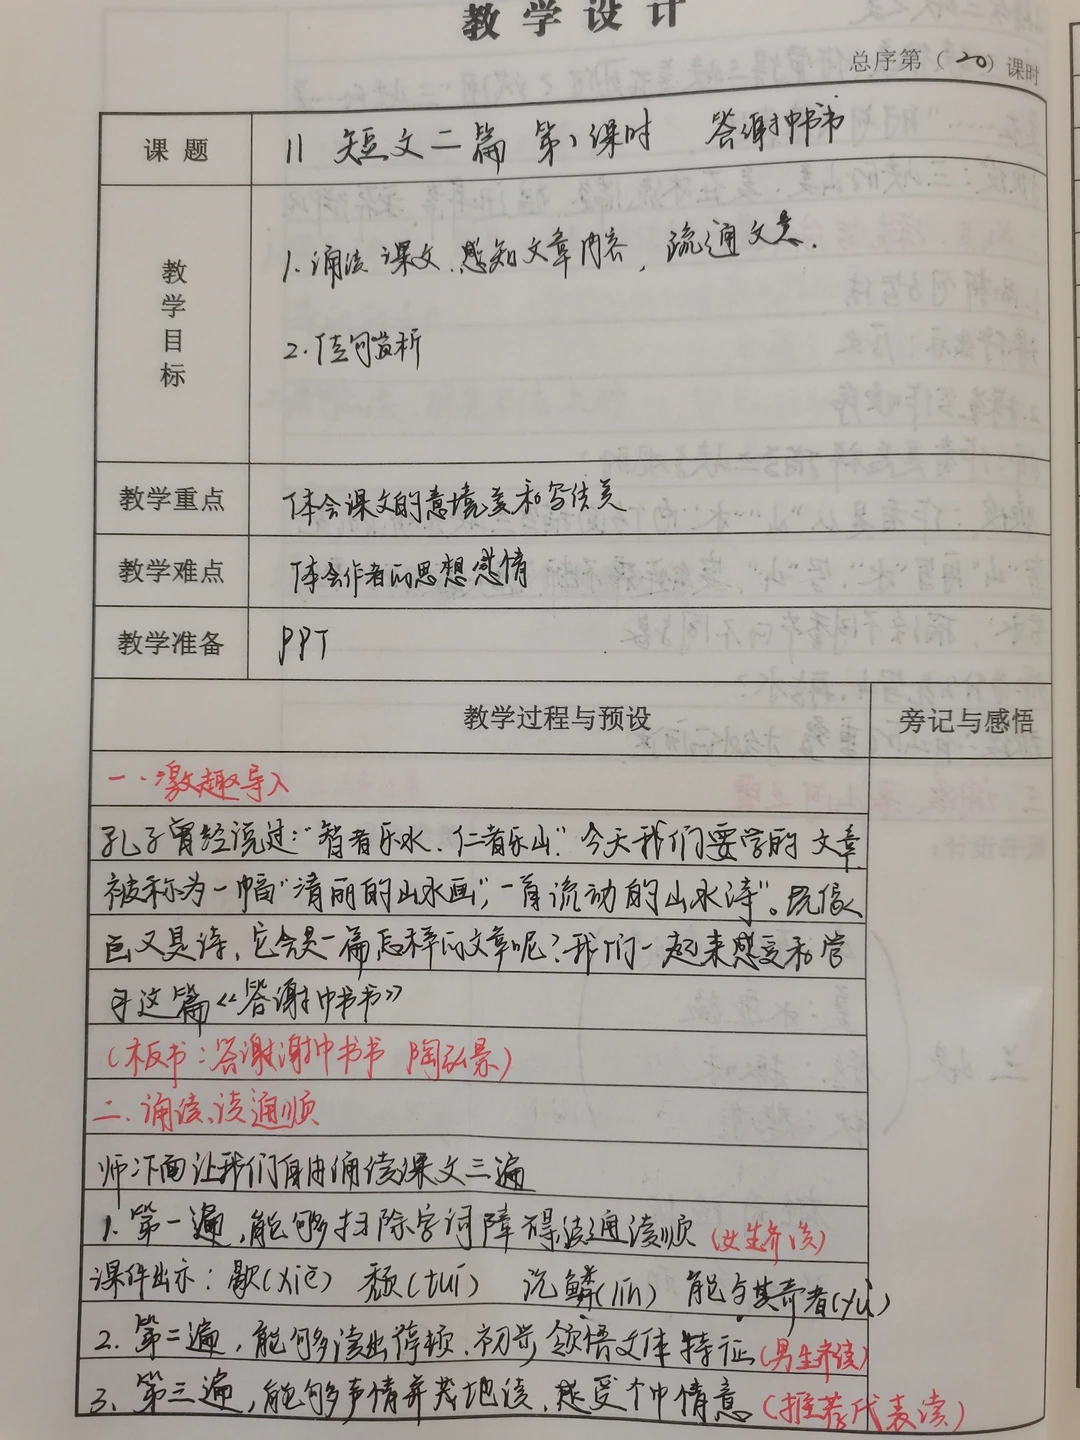 教学设计
总序第（20）课时
课题
11 短文二篇 第1课时 答谢中书书
教学目标
1. 诵读课文，感知文章内容，疏通文意.
2. 佳句赏析
教学重点
体会课文的意境美和写法美
教学难点
体会作者的思想感情
教学准备
PPT
教学过程与预设
旁记与感悟
一、激趣导入
孔子曾经说过：“智者乐水，仁者乐山.”今天我们要学的文章
被称为一幅“清丽的山水画”，“一首流动的山水诗”。既像
画又是诗，它会是一篇怎样的文章呢？我们一起来感受和学
习这篇《答谢中书书》
（板书：答谢谢中书书 陶弘景）
二、诵读、读通顺
师：下面让我们自由诵读课文三遍
1. 第一遍，能够扫除字词障碍，读通读顺（女生齐读）
课件出示：歇（xiē） 颓（tuí） 沉鳞（lín） 能与其奇者（yù）
2. 第二遍，能够读出停顿，初步领悟文体特征（男生齐读）
3、第三遍，能够声情并茂地读，感受个中情意（推荐代表读）